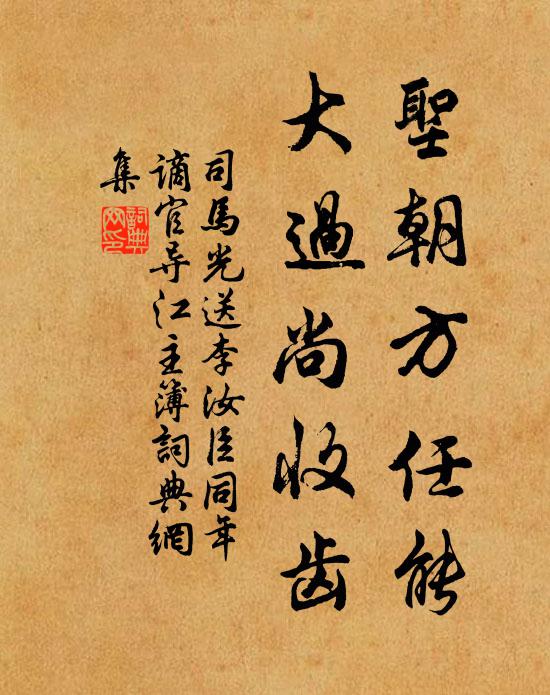 聖朝方任能
大過尚收齒
司馬光送李汝臣同年
謫官导江主簿詞典網
集
詞典网印